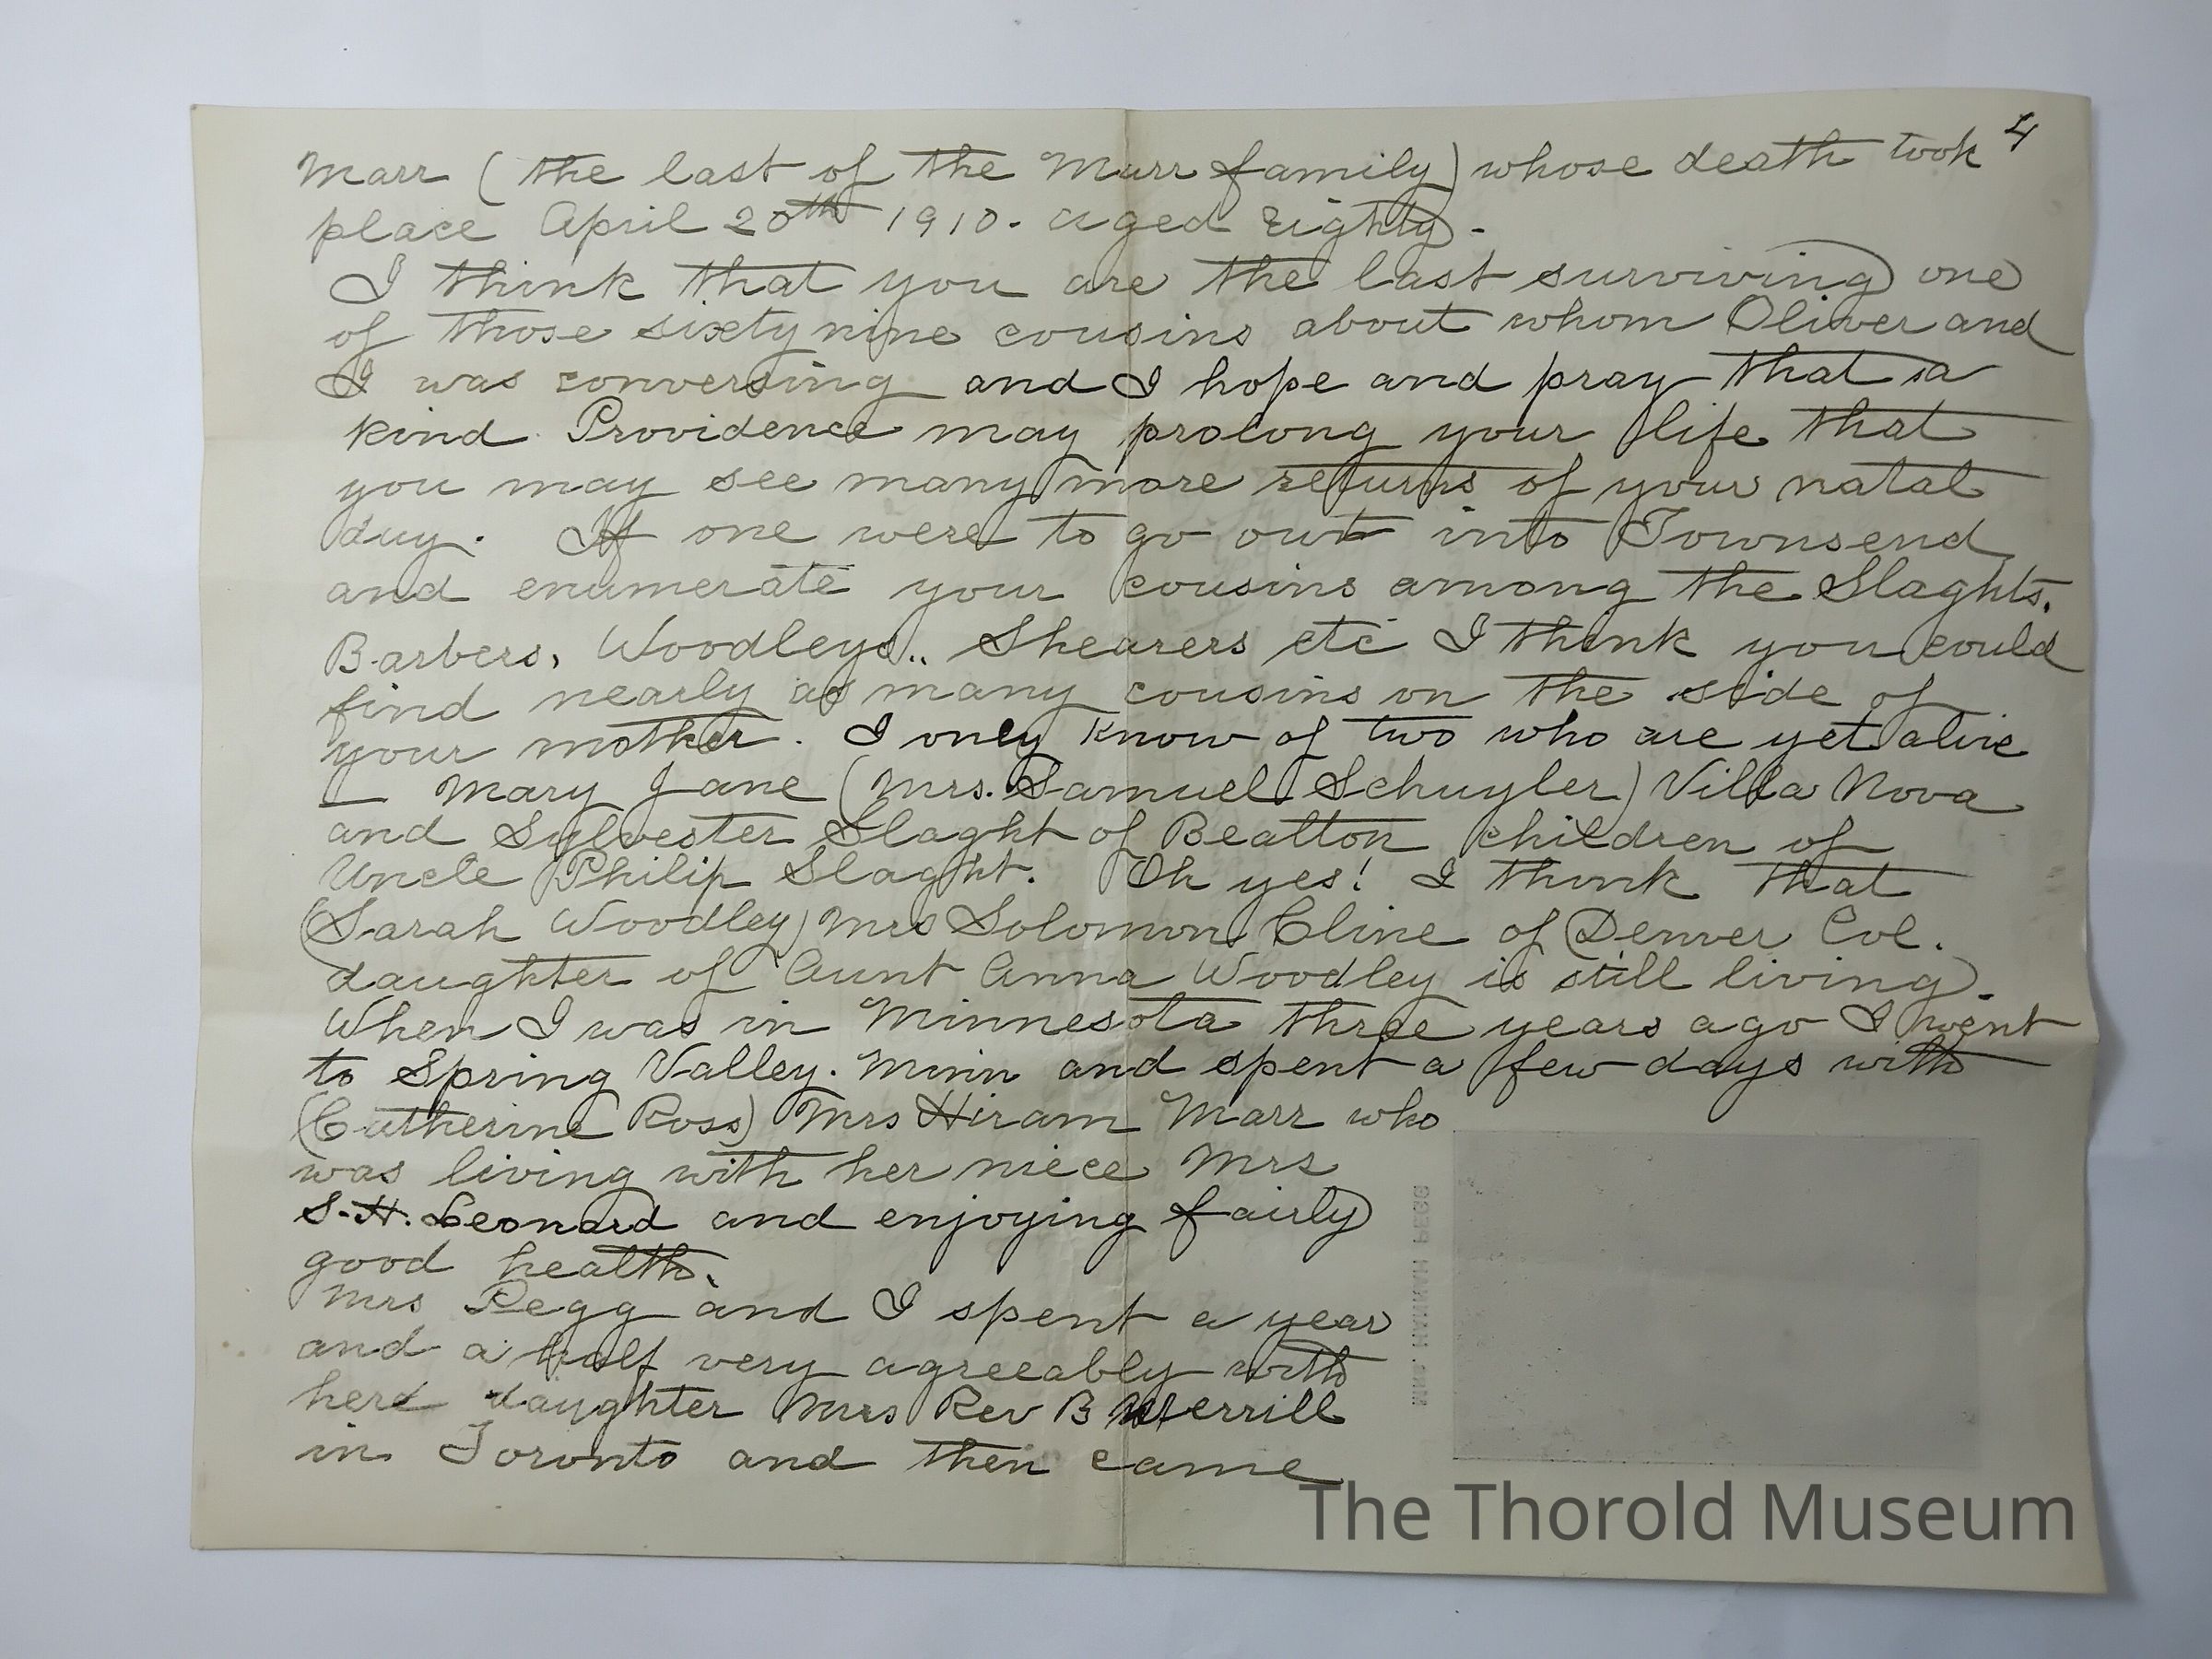 4
Marr (the last of the Marr family) whose death took
place April 20th 1910. aged Eighty.
I think that you are the last surviving one
of those sixty nine cousins about whom Oliver and
I was conversing and I hope and pray that a
kind Providence may prolong your life that
you may see many more returns of your natal
day. If one were to go out into Townsend
and enumerate your cousins among the Slaghts.
Barbers, Woodleys.. Shearers etc I think you could
find nearly as many cousins on the side of
your mother. I only know of two who are yet alive
— Mary Jane (Mrs. Samuel Schuyler) Villa Nova
and Sylvester Slaght of Bealton children of
Uncle Philip Slaght. Oh yes! I think that
(Sarah Woodley) Mrs Solomon Cline of Denver Col.
daughter of Aunt Anna Woodley is still living.
When I was in Minnesota three years ago I went
to Spring Valley. Minn and spent a few days with
(Catherine Ross) Mrs Hiram Marr who
was living with her niece Mrs
S.H. Leonard and enjoying fairly
good health.
Mrs Pegg and I spent a year
and a half very agreeably with
here daughter Mrs Rev B Merrill
in Toronto and then came
MRS. HANNAH PEGG
The Thorold Museum